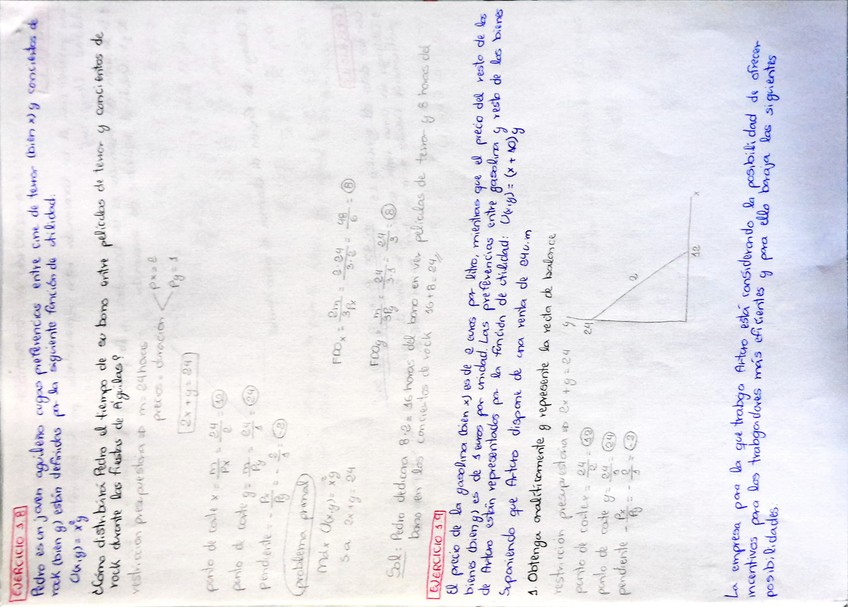 EJERCICIO 1.8
Pedro es un joven aguileño cuyas preferencias entre cine de terror (bien x) y conciertos de
rock (bien y) están definidas por la siguiente función de utilidad.
U(x,y) = x²y
¿Cómo distribuirá Pedro el tiempo de su bono entre películas de terror y conciertos de
rock durante las fiestas de Águilas?
restricción presupuestaria ⇒ m = 24 horas
precios = duración < px = 2
py = 1
2x + y = 24
punto de corte x = m/Px = 24/2 = 12
punto de corte y = m/Py = 24/1 = 24
pendiente = - Px/Py = - 2/1 = -2
problema primal
Max U(x,y) = x²y
s.a 2x + y = 24
FDOx = 2m/3Px = 2·24/3·2 = 48/6 = 8
FDOy = m/3Py = 24/3·1 = 24/3 = 8
Sol: Pedro dedicará 8·2 = 16 horas del bono en ver películas de terror y 8 horas del
bono en los conciertos de rock 16+8 = 24
EJERCICIO 1.9
El precio de la gasolina (bien x) es de 2 euros por litro, mientras que el precio del resto de los
bienes (bien y) es de 1 euros por unidad. Las preferencias entre gasolina y resto de los bienes
de Arturo están representados por la función de utilidad: U(x,y) = (x + 10)y
Suponiendo que Arturo dispone de una renta de 24 u.m
1. Obtenga analíticamente y represente la recta de balance
restricción presupuestaria ⇒ 2x + y = 24
punto de corte x = 24/2 = 12
punto de corte y = 24/1 = 24
pendiente - Px/Py = - 2/1 = -2
y
24
2
12
x
La empresa para la que trabaja Arturo está considerando la posibilidad de ofrecer
incentivos para los trabajadores más eficientes y para ello baraja las siguientes
posibilidades